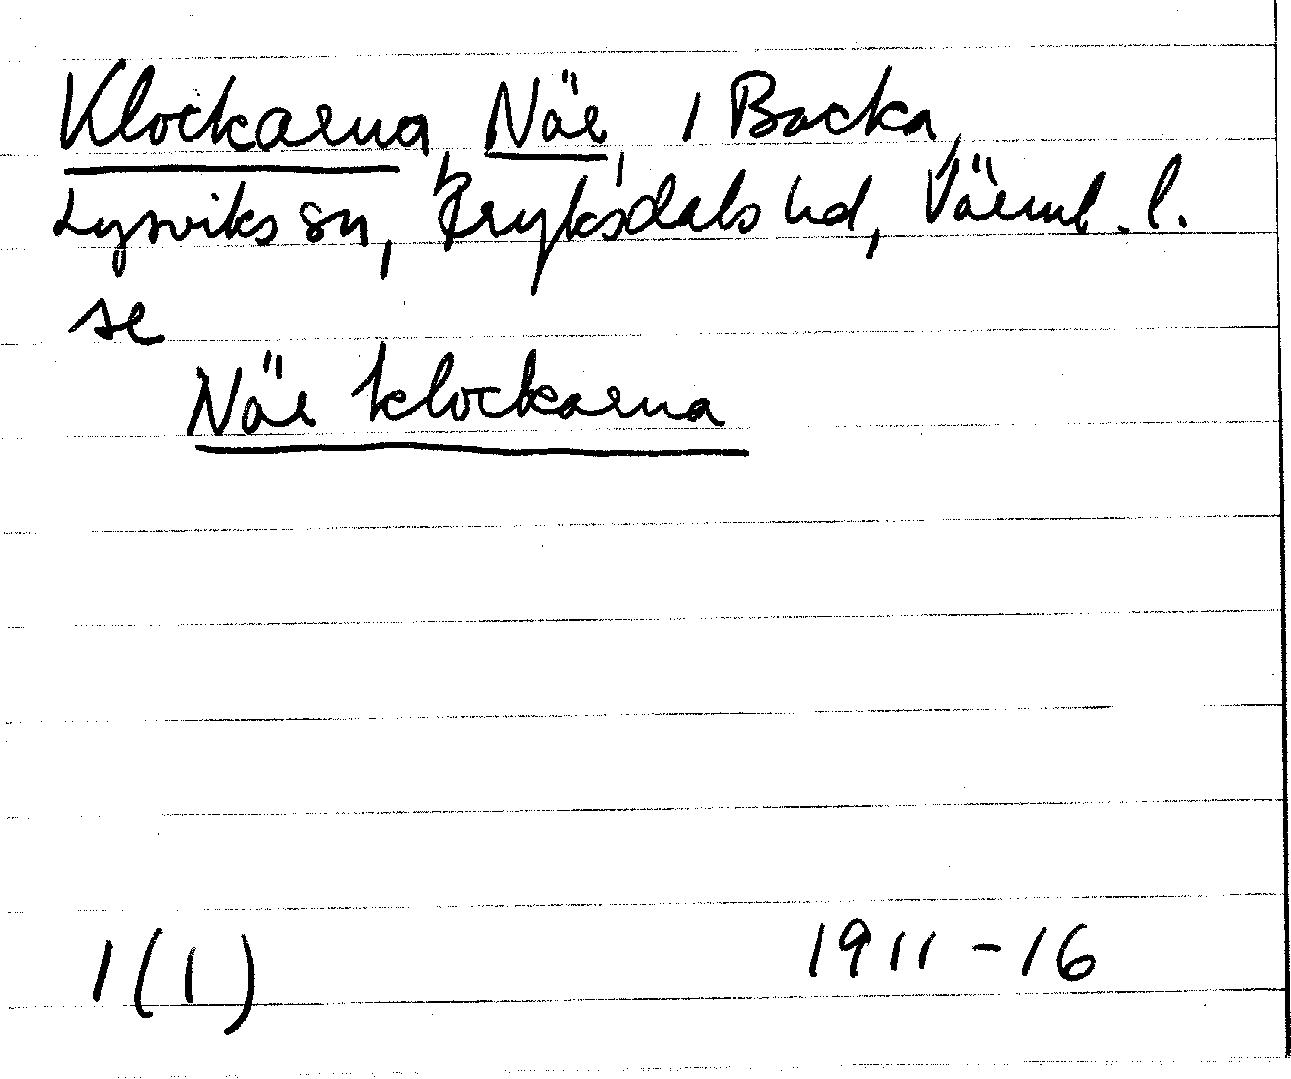 Klockarna, När, 1 Backa,
Lysviks sn, Fryksdals hd, Värml. l.
se
När klockarna
1(1) 1911-16